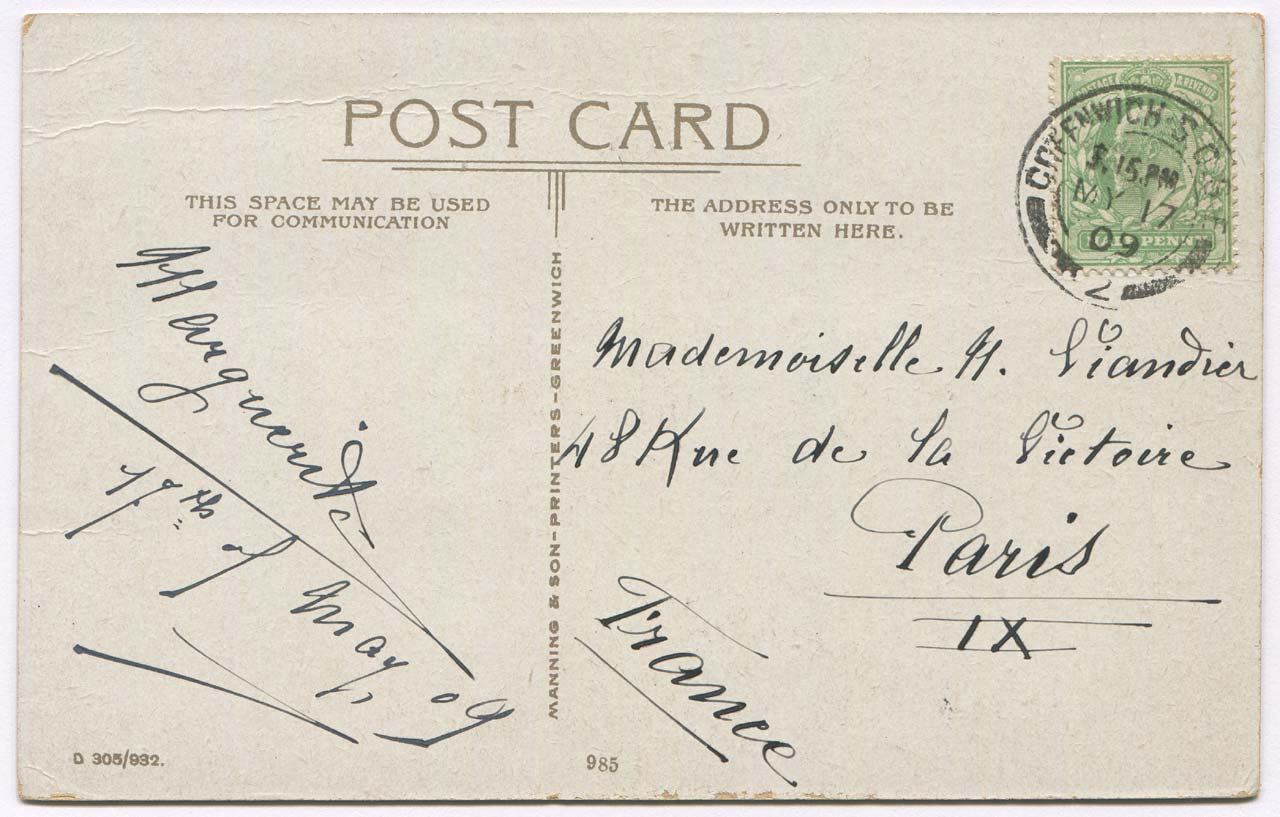 POST CARD
THIS SPACE MAY BE USED
FOR COMMUNICATION
THE ADDRESS ONLY TO BE
WRITTEN HERE.
POSTAGE & REVENUE
GREENWICH S.O.
15.PM
MY 17
09
2
Marguerite
17th of May 09
MANNING & SON-PRINTERS-GREENWICH
Mademoiselle M. Viandier
48 Rue de la Victoire
Paris
IX
France
D 305/932.
985